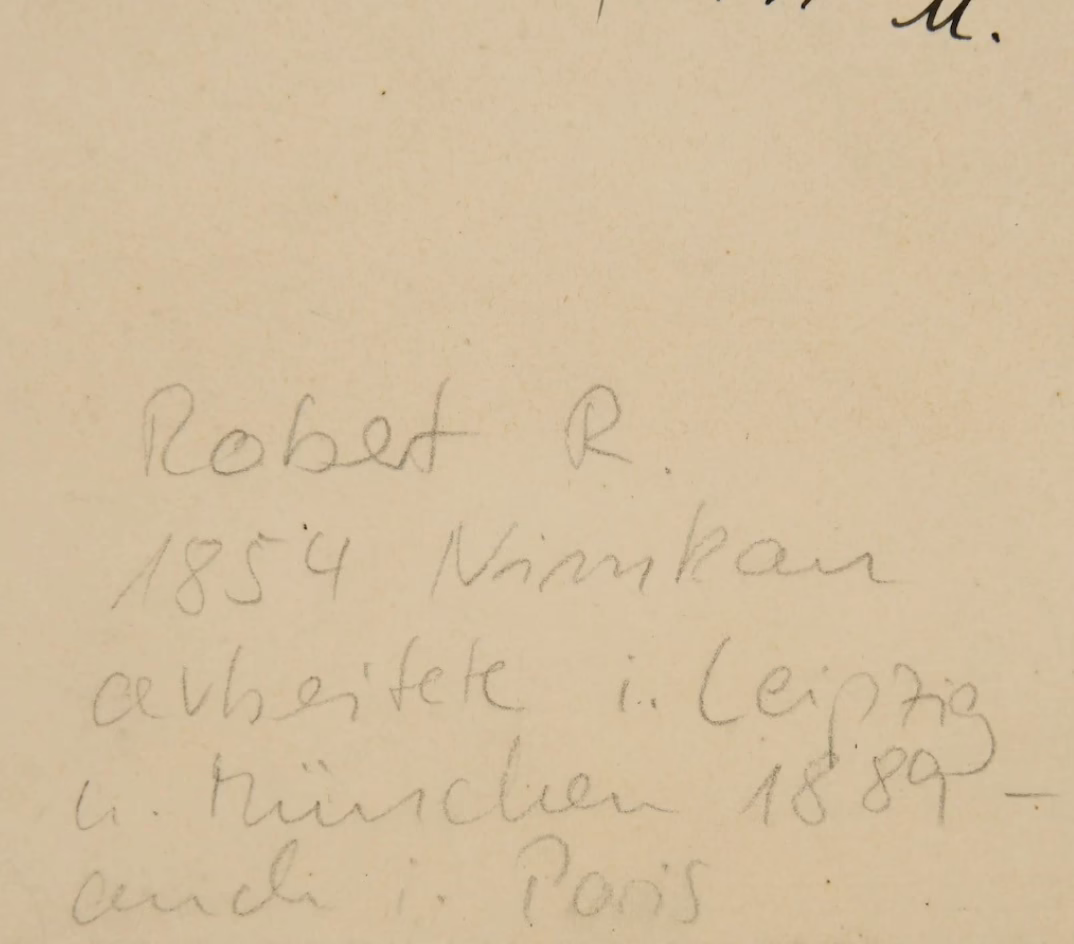 M.
Robert R.
1854 Nimkau
arbeitete i. Leipzig
u. München 1889 –
auch i. Paris